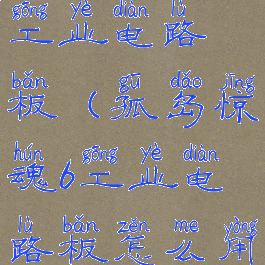 gōng yè diàn lù
工业电路
bǎn gū dǎo jīng
板（孤岛惊
hún gōng yè diàn
魂6工业电
lù bǎn zěn me yòng
路板怎么用